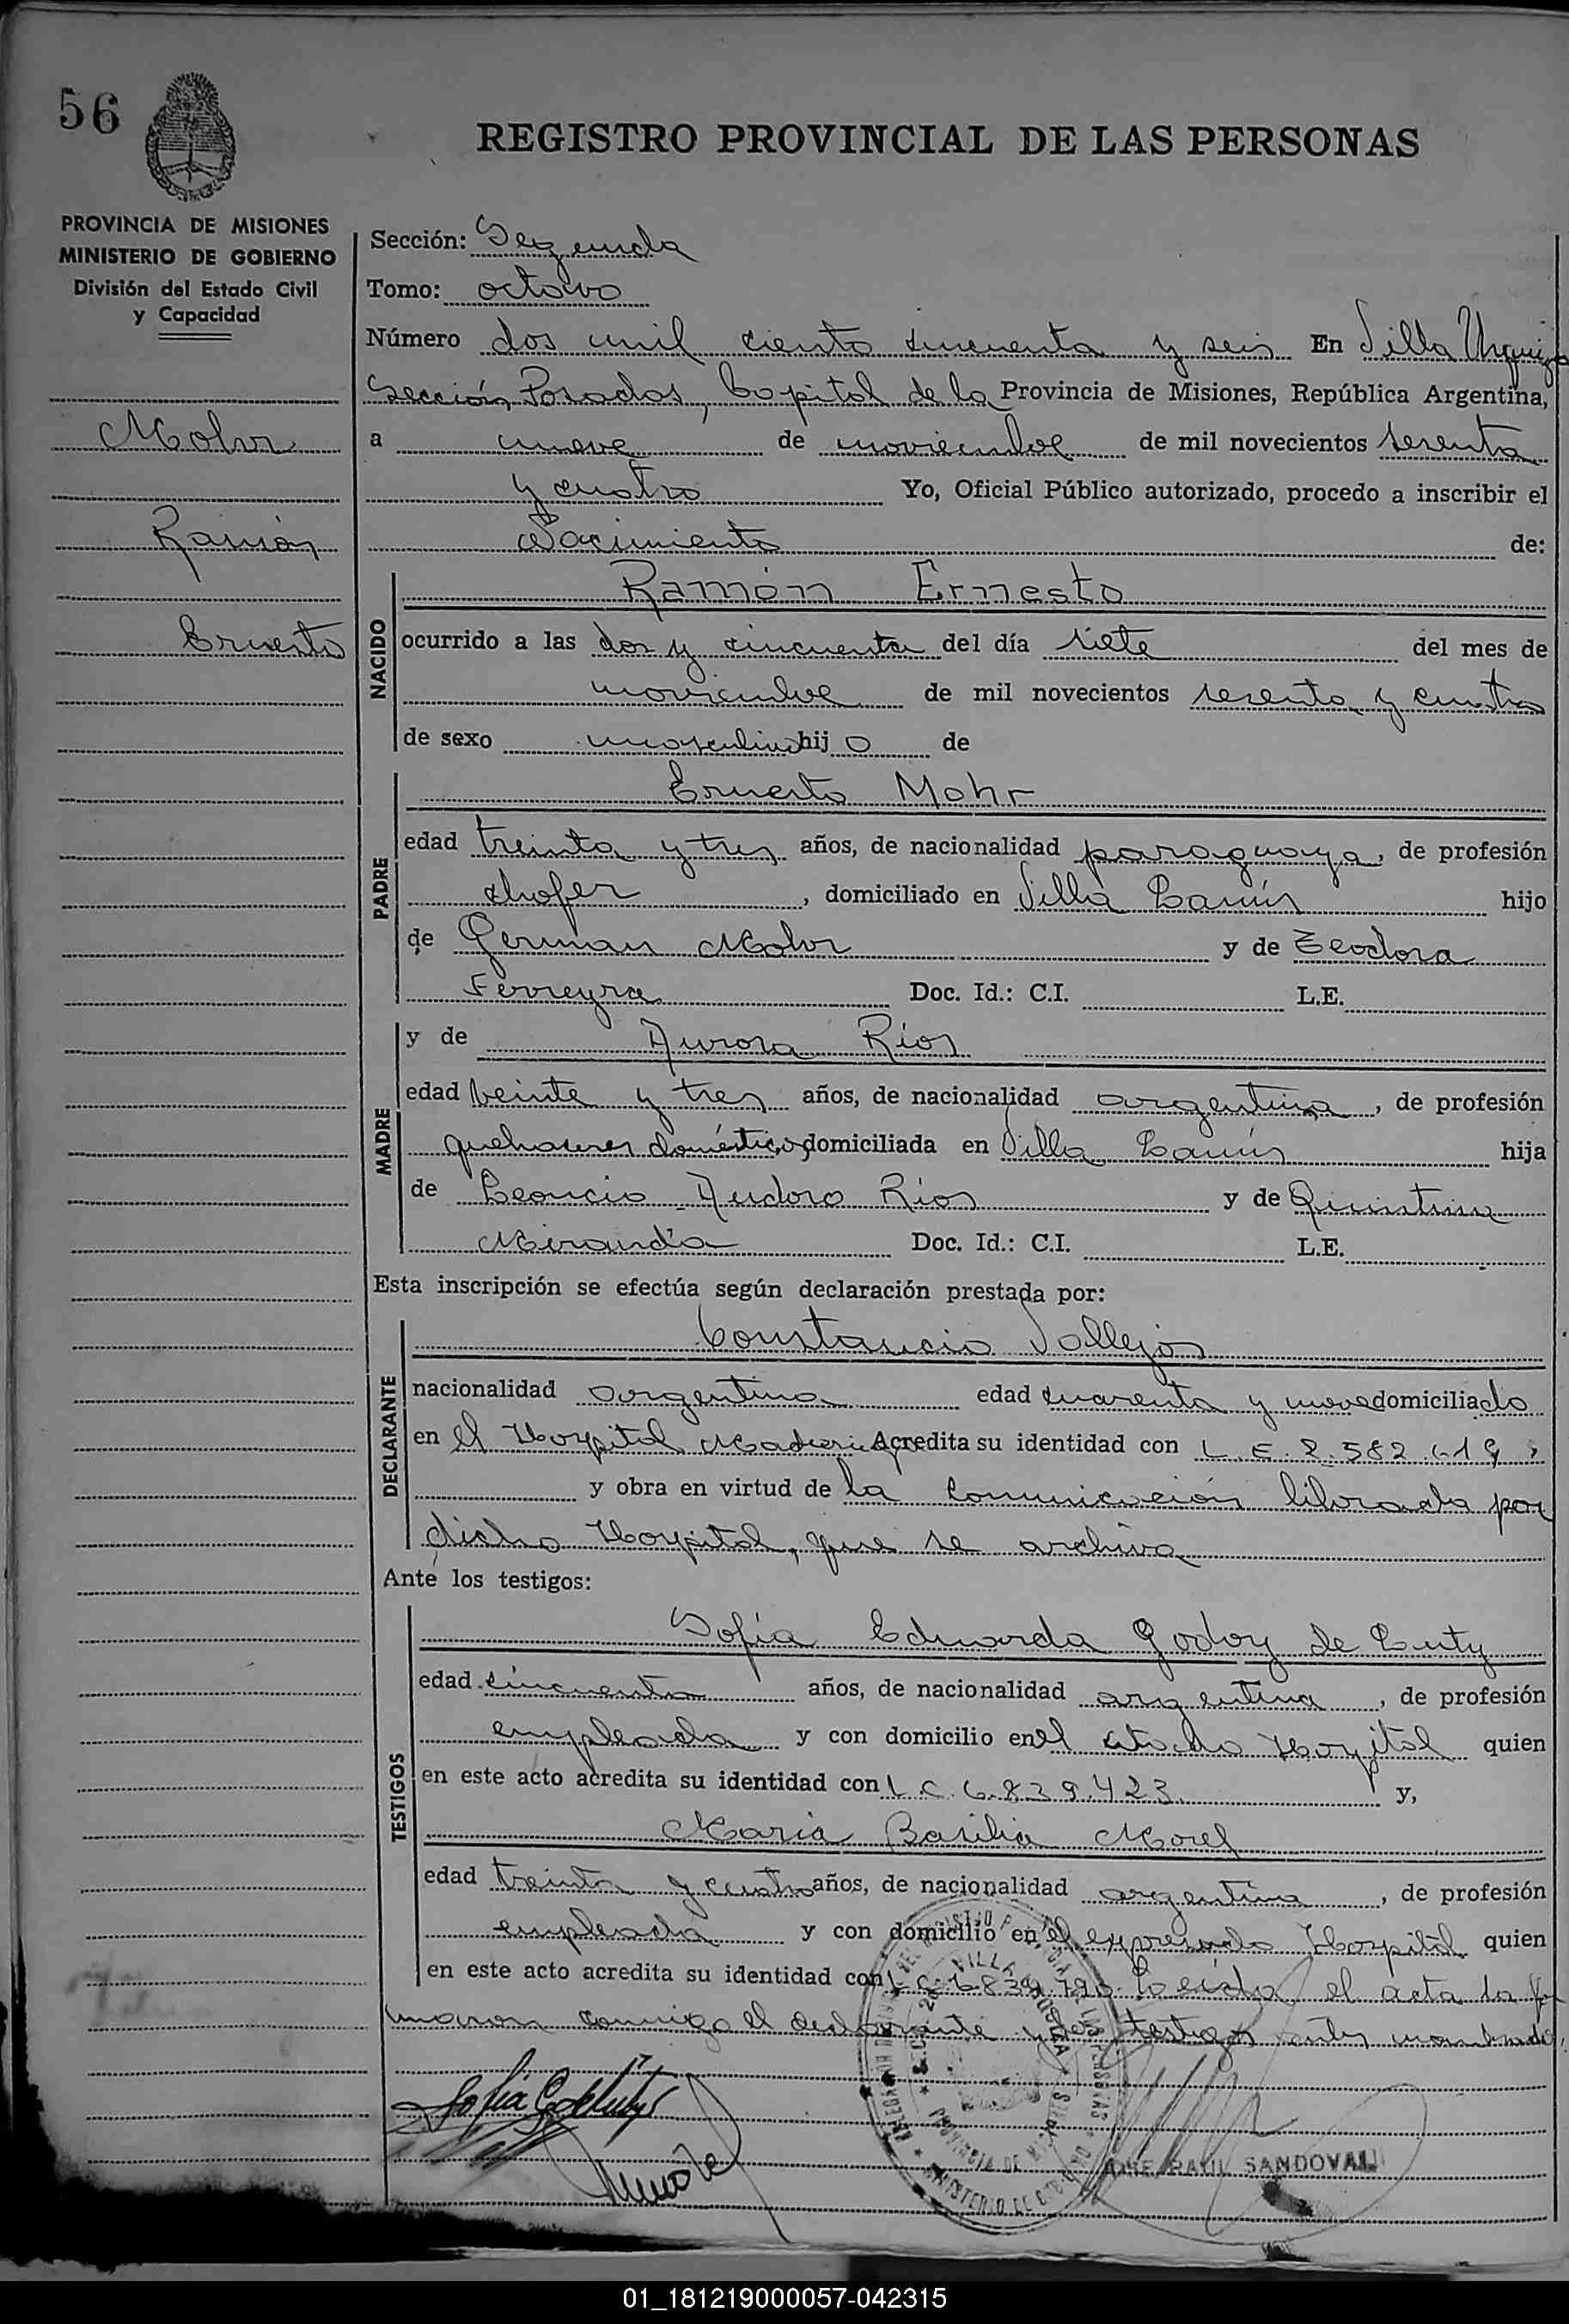 56
REGISTRO PROVINCIAL DE LAS PERSONAS
PROVINCIA DE MISIONES
MINISTERIO DE GOBIERNO
División del Estado Civil
y Capacidad
Mohr
Ramón
Ernesto
Sección: Segunda
Tomo: octavo
Número dos mil ciento cincuenta y seis En Villa Urquiza
Sección Posadas, Capital de la Provincia de Misiones, República Argentina,
a nueve de noviembre de mil novecientos sesenta
y cuatro Yo, Oficial Público autorizado, procedo a inscribir el
Nacimiento de:
NACIDO
Ramón Ernesto
ocurrido a las dos y cincuenta del día siete del mes de
noviembre de mil novecientos sesenta y cuatro
de sexo masculino hijo de
PADRE
Ernesto Mohr
edad treinta y tres años, de nacionalidad paraguaya, de profesión
chofer, domiciliado en Villa Lanús hijo
de German Mohr y de Teodora
Ferreyra Doc. Id.: C.I. L.E.
MADRE
y de Aurora Ríos
edad veinte y tres años, de nacionalidad argentina, de profesión
quehaceres domésticos domiciliada en Villa Lanús hija
de Leoncio Audoro Ríos y de Quintina
Miranda Doc. Id.: C.I. L.E.
Esta inscripción se efectúa según declaración prestada por:
DECLARANTE
Constancio Vallejos
nacionalidad argentina edad cuarenta y nueve domiciliado
en el Hospital Madariaga Acredita su identidad con L.E. 2.582.619,
y obra en virtud de la comunicación librada por
dicho Hospital, que se archiva
Ante los testigos:
TESTIGOS
Sofía Eduarda Godoy de Luty
edad cincuenta años, de nacionalidad argentina, de profesión
empleada y con domicilio en el citado Hospital quien
en este acto acredita su identidad con L C. 6.839.423. y,
María Basilia Morel
edad treinta y cuatro años, de nacionalidad argentina, de profesión
empleada y con domicilio en el expresado Hospital quien
en este acto acredita su identidad con L C. 6839.790. Leída el acta la fir
maron conmigo el declarante y los testigos antes nombrados.
JOSE RAUL SANDOVAL
01_181219000057-042315